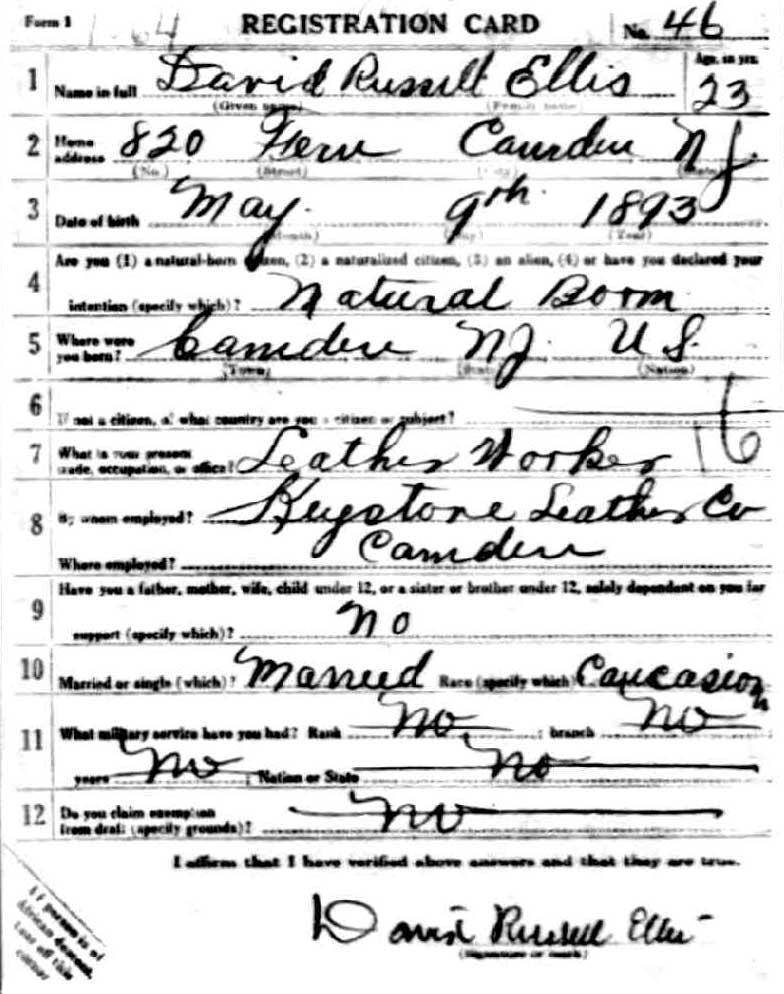 Form 1 1-64 REGISTRATION CARD No. 46
1 Name in full David Russell Ellis Age, in yrs. 23
(Given name) (Family name)
2 Home address 820 Fern Camden N J
(No.) (Street) (City) (State)
3 Date of birth May 9th 1893
(Month) (Day) (Year)
Are you (1) a natural-born citizen, (2) a naturalized citizen, (3) an alien, (4) or have you declared your
4 intention (specify which)? Natural Born
5 Where were you born? Camden NJ. U S.
(Town) (State) (Nation)
6 If not a citizen, of what country are you a citizen or subject?
7 What is your present trade, occupation, or office? Leather Worker 16
8 By whom employed? Keystone Leather Co
Where employed? Camden
9 Have you a father, mother, wife, child under 12, or a sister or brother under 12, solely dependent on you for
support (specify which)? No
10 Married or single (which)? Married Race (specify which) Caucasion
11 What military service have you had? Rank No ; branch No
years No ; Nation or State No
12 Do you claim exemption from draft (specify grounds)? No
I affirm that I have verified above answers and that they are true.
David Russell Ellis
(Signature or mark)
If person is of
African descent,
tear off this
corner